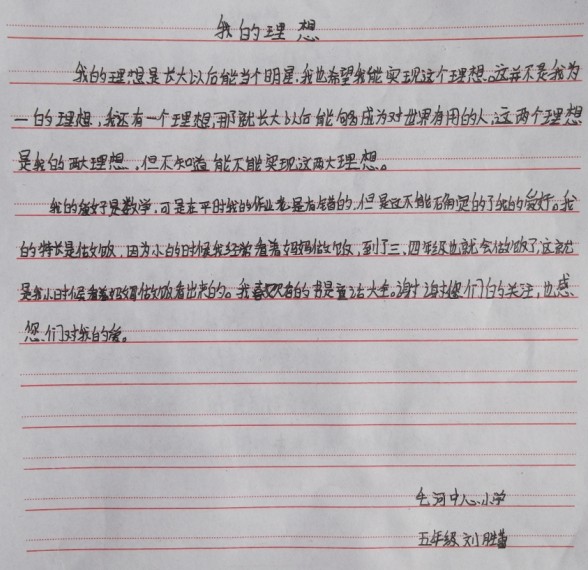 我的理想
我的理想是长大以后能当个明星,我也希望我能实现这个理想。这并不是我为
一的理想,我还有一个理想,那就长大以后能够成为对世界有用的人,这两个理想
是我的两大理想,但不知道能不能实现这两大理想。
我的爱好是数学,可是在平时我的作业老是有错的,但是这不能确定的了我的爱好。我
的特长是做饭,因为小的时候我经常看着妈妈做饭,到了三、四年级也就会做饭了,这就
是我小时候看着妈妈做饭看出来的。我喜欢看的书是童话大全。谢谢您们的关注,也感
您们对我的爱。
河中心小学
五年级 刘胜